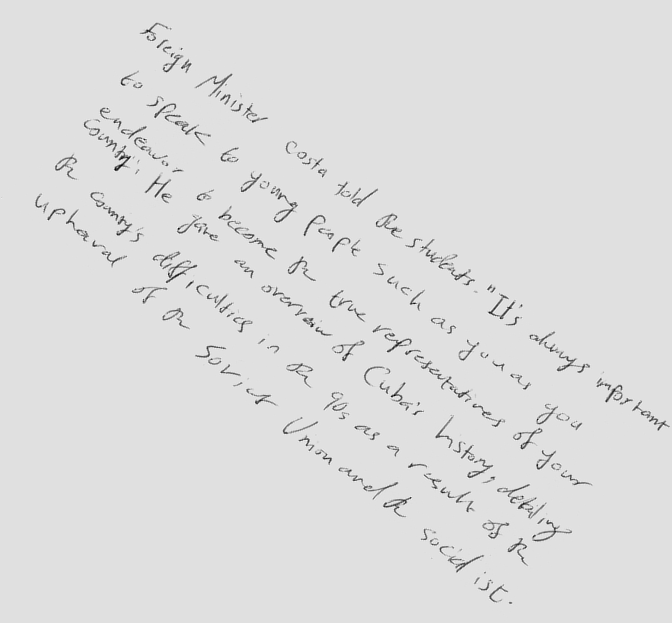 Foreign Minister Costa told the students. "It's always important
to speak to young people such as you as you
endeavor to become the true representatives of your
country. He gave an overview of Cuba's history, detailing
the country's difficulties in the 90s as a result of the
upheaval of the Soviet Union and the socialist.